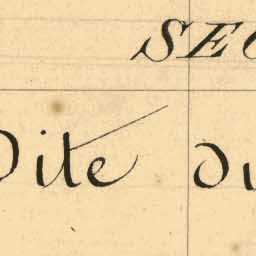 SEC
Dite du